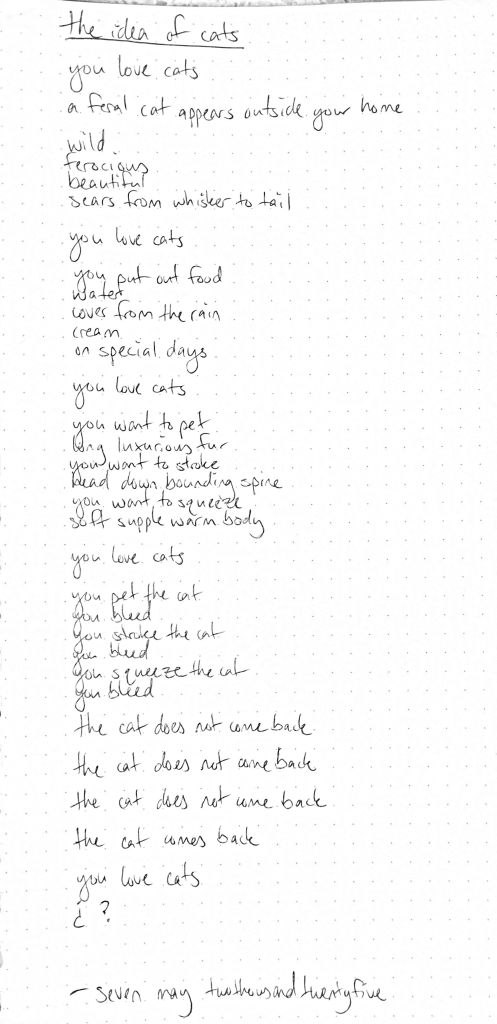 the idea of cats
you love cats
a feral cat appears outside your home
wild
ferocious
beautiful
scars from whisker to tail
you love cats
you put out food
water
cover from the rain
cream
on special days
you love cats
you want to pet
long luxurious fur
you want to stroke
head down bounding spine
you want to squeeze
soft supple warm body
you love cats
you pet the cat
you bleed
you stroke the cat
you bleed
you squeeze the cat
you bleed
the cat does not come back
the cat does not come back
the cat does not come back
the cat comes back
you love cats
¿ ?
- seven may twothousandtwentyfive